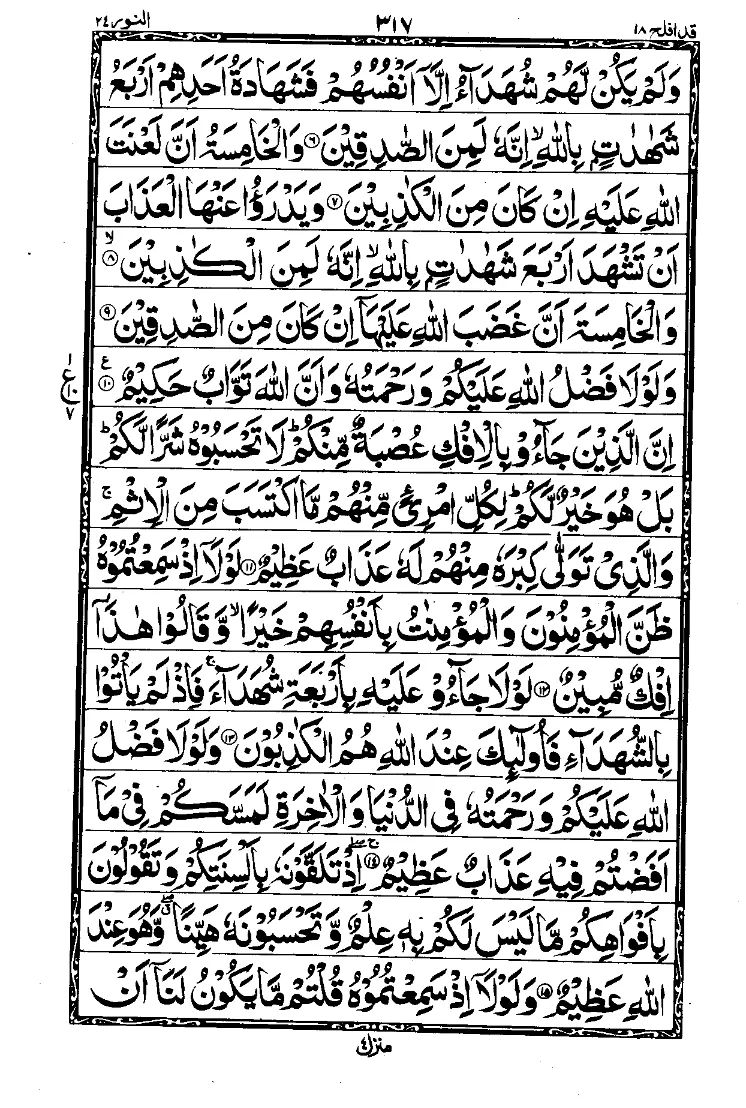 قد افلح ١٨ ٣١٧ النور ٢٤
وَلَمۡ يَكُنۡ لَّهُمۡ شُهَدَآءُ اِلَّاۤ اَنۡفُسُهُمۡ فَشَهَادَةُ اَحَدِهِمۡ اَرۡبَعُ
شَهٰدٰتٍۭ بِاللّٰهِ‌ۙ اِنَّهٗ لَمِنَ الصّٰدِقِيۡنَ ﴿۶﴾ وَالۡخَامِسَةُ اَنَّ لَعۡنَتَ
اللّٰهِ عَلَيۡهِ اِنۡ كَانَ مِنَ الۡكٰذِبِيۡنَ ﴿۷﴾ وَيَدۡرَؤُا عَنۡهَا الۡعَذَابَ
اَنۡ تَشۡهَدَ اَرۡبَعَ شَهٰدٰتٍۭ بِاللّٰهِ‌ۙ اِنَّهٗ لَمِنَ الۡكٰذِبِيۡنَۙ ﴿۸﴾
وَالۡخَامِسَةَ اَنَّ غَضَبَ اللّٰهِ عَلَيۡهَاۤ اِنۡ كَانَ مِنَ الصّٰدِقِيۡنَ ﴿۹﴾
وَلَوۡلَا فَضۡلُ اللّٰهِ عَلَيۡكُمۡ وَرَحۡمَتُهٗ وَاَنَّ اللّٰهَ تَوَّابٌ حَكِيۡمٌ ﴿۱۰﴾ ع
اِنَّ الَّذِيۡنَ جَآءُوۡ بِالۡاِفۡكِ عُصۡبَةٌ مِّنۡكُمۡ‌ؕ لَا تَحۡسَبُوۡهُ شَرًّا لَّـكُمۡ‌ؕ
بَلۡ هُوَ خَيۡرٌ لَّـكُمۡ‌ؕ لِكُلِّ امۡرِىٴٍ مِّنۡهُمۡ مَّا اكۡتَسَبَ مِنَ الۡاِثۡمِ‌ۚ
وَالَّذِىۡ تَوَلّٰى كِبۡرَهٗ مِنۡهُمۡ لَهٗ عَذَابٌ عَظِيۡمٌ ﴿۱۱﴾ لَوۡلَاۤ اِذۡ سَمِعۡتُمُوۡهُ
ظَنَّ الۡمُؤۡمِنُوۡنَ وَالۡمُؤۡمِنٰتُ بِاَنۡفُسِهِمۡ خَيۡرًاۙ وَّقَالُوۡا هٰذَاۤ
اِفۡكٌ مُّبِيۡنٌ ﴿۱۲﴾ لَوۡلَا جَآءُوۡ عَلَيۡهِ بِاَرۡبَعَةِ شُهَدَآءَ‌ۚ فَاِذۡ لَمۡ يَاۡتُوۡا
بِالشُّهَدَآءِ فَاُولٰٓٮِٕكَ عِنۡدَ اللّٰهِ هُمُ الۡـكٰذِبُوۡنَ ﴿۱۳﴾ وَلَوۡلَا فَضۡلُ
اللّٰهِ عَلَيۡكُمۡ وَرَحۡمَتُهٗ فِى الدُّنۡيَا وَالۡاٰخِرَةِ لَمَسَّكُمۡ فِىۡ مَاۤ
اَفَضۡتُمۡ فِيۡهِ عَذَابٌ عَظِيۡمٌ ﴿۱۴﴾ اِذۡ تَلَقَّوۡنَهٗ بِاَلۡسِنَتِكُمۡ وَتَقُوۡلُوۡنَ
بِاَفۡوَاهِكُمۡ مَّا لَـيۡسَ لَـكُمۡ بِهٖ عِلۡمٌ وَّتَحۡسَبُوۡنَهٗ هَيِّنًا ۖ وَّهُوَ عِنۡدَ
اللّٰهِ عَظِيۡمٌ ﴿۱۵﴾ وَلَوۡلَاۤ اِذۡ سَمِعۡتُمُوۡهُ قُلۡتُمۡ مَّا يَكُوۡنُ لَـنَاۤ اَنۡ
منزل ٤